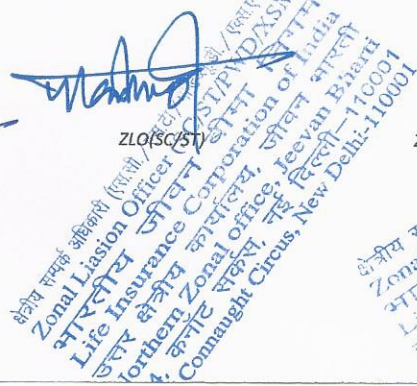 ZLO(SC/ST)
क्षेत्रीय सम्पर्क अधिकारी (एस.सी./
Zonal Liasion Officer /ST/PWD/XSM
भारतीय जीवन बीमा निगम
Life Insurance Corporation of India
उत्तर क्षेत्रीय कार्यालय, जीवन भारती
Northern Zonal office, Jeevan Bharti
कनॉट सर्कस, नई दिल्ली–110001
Connaught Circus, New Delhi-110001
क्षेत्रीय
Zona